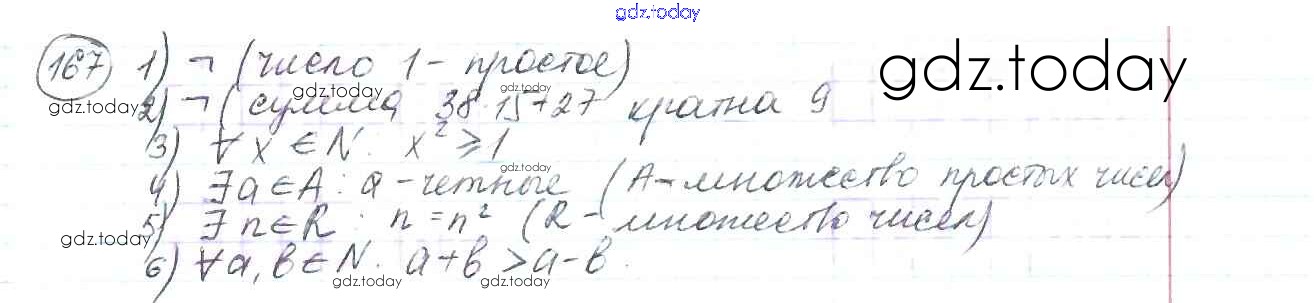 gdz.today
167 1) ¬ (число 1 - простое)
gdz.today
gdz.today 2) ¬ (сумма 38·15+27 кратна 9
gdz.today gdz.today
3) ∀ x ∈ N: x² ⩾ 1
gdz.today
4) ∃ a ∈ A: a - четные (A - множество простых чисел)
5) ∃ n ∈ R: n = n² (R - множество чисел)
gdz.today
6) ∀ a, b ∈ N: a + b > a - b.
gdz.today gdz.today